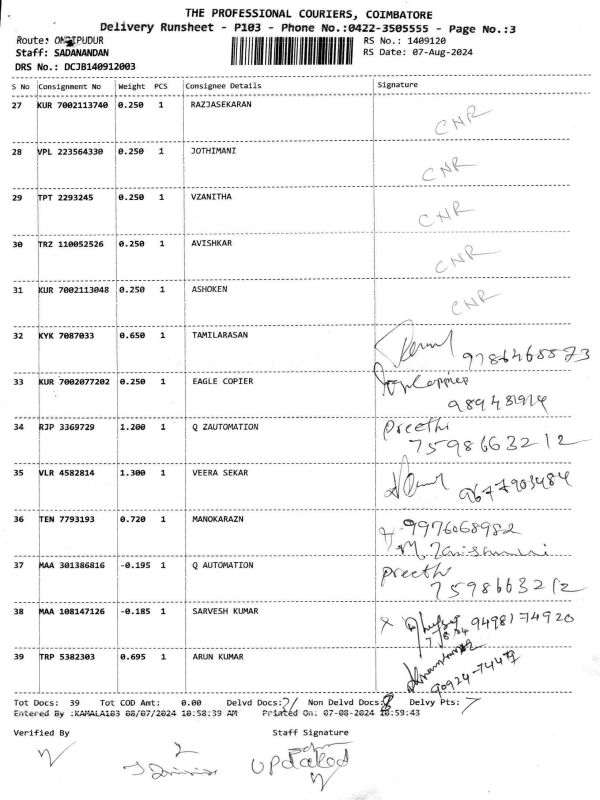 THE PROFESSIONAL COURIERS, COIMBATORE
Delivery Runsheet - P103 - Phone No.:0422-3505555 - Page No.:3
Route: ONDIPUDUR RS No.: 1409120
Staff: SADANANDAN RS Date: 07-Aug-2024
DRS No.: DCJB140912003
S No Consignment No Weight PCS Consignee Details Signature
27 KUR 7002113740 0.250 1 RAZJASEKARAN CNR
28 VPL 223564330 0.250 1 JOTHIMANI CNR
29 TPT 2293245 0.250 1 VZANITHA CNR
30 TRZ 110052526 0.250 1 AVISHKAR CNR
31 KUR 7002113048 0.250 1 ASHOKEN CNR
32 KYK 7087033 0.650 1 TAMILARASAN
33 KUR 7002077202 0.250 1 EAGLE COPIER
34 RJP 3369729 1.200 1 Q ZAUTOMATION Preethi
7598663212
35 VLR 4582814 1.300 1 VEERA SEKAR 9677903484
36 TEN 7793193 0.720 1 MANOKARAZN 9976068982
37 MAA 301386816 -0.195 1 Q AUTOMATION Preethi
7598663212
38 MAA 108147126 -0.185 1 SARVESH KUMAR 9498174920
39 TRP 5382303 0.695 1 ARUN KUMAR 90924-74479
Tot Docs: 39 Tot COD Amt: 0.00 Delvd Docs: Non Delvd Docs: 8 Delvy Pts: 7
Entered By :KAMALA103 08/07/2024 10:58:39 AM Printed On: 07-08-2024 10:59:43
Verified By Staff Signature
Updated